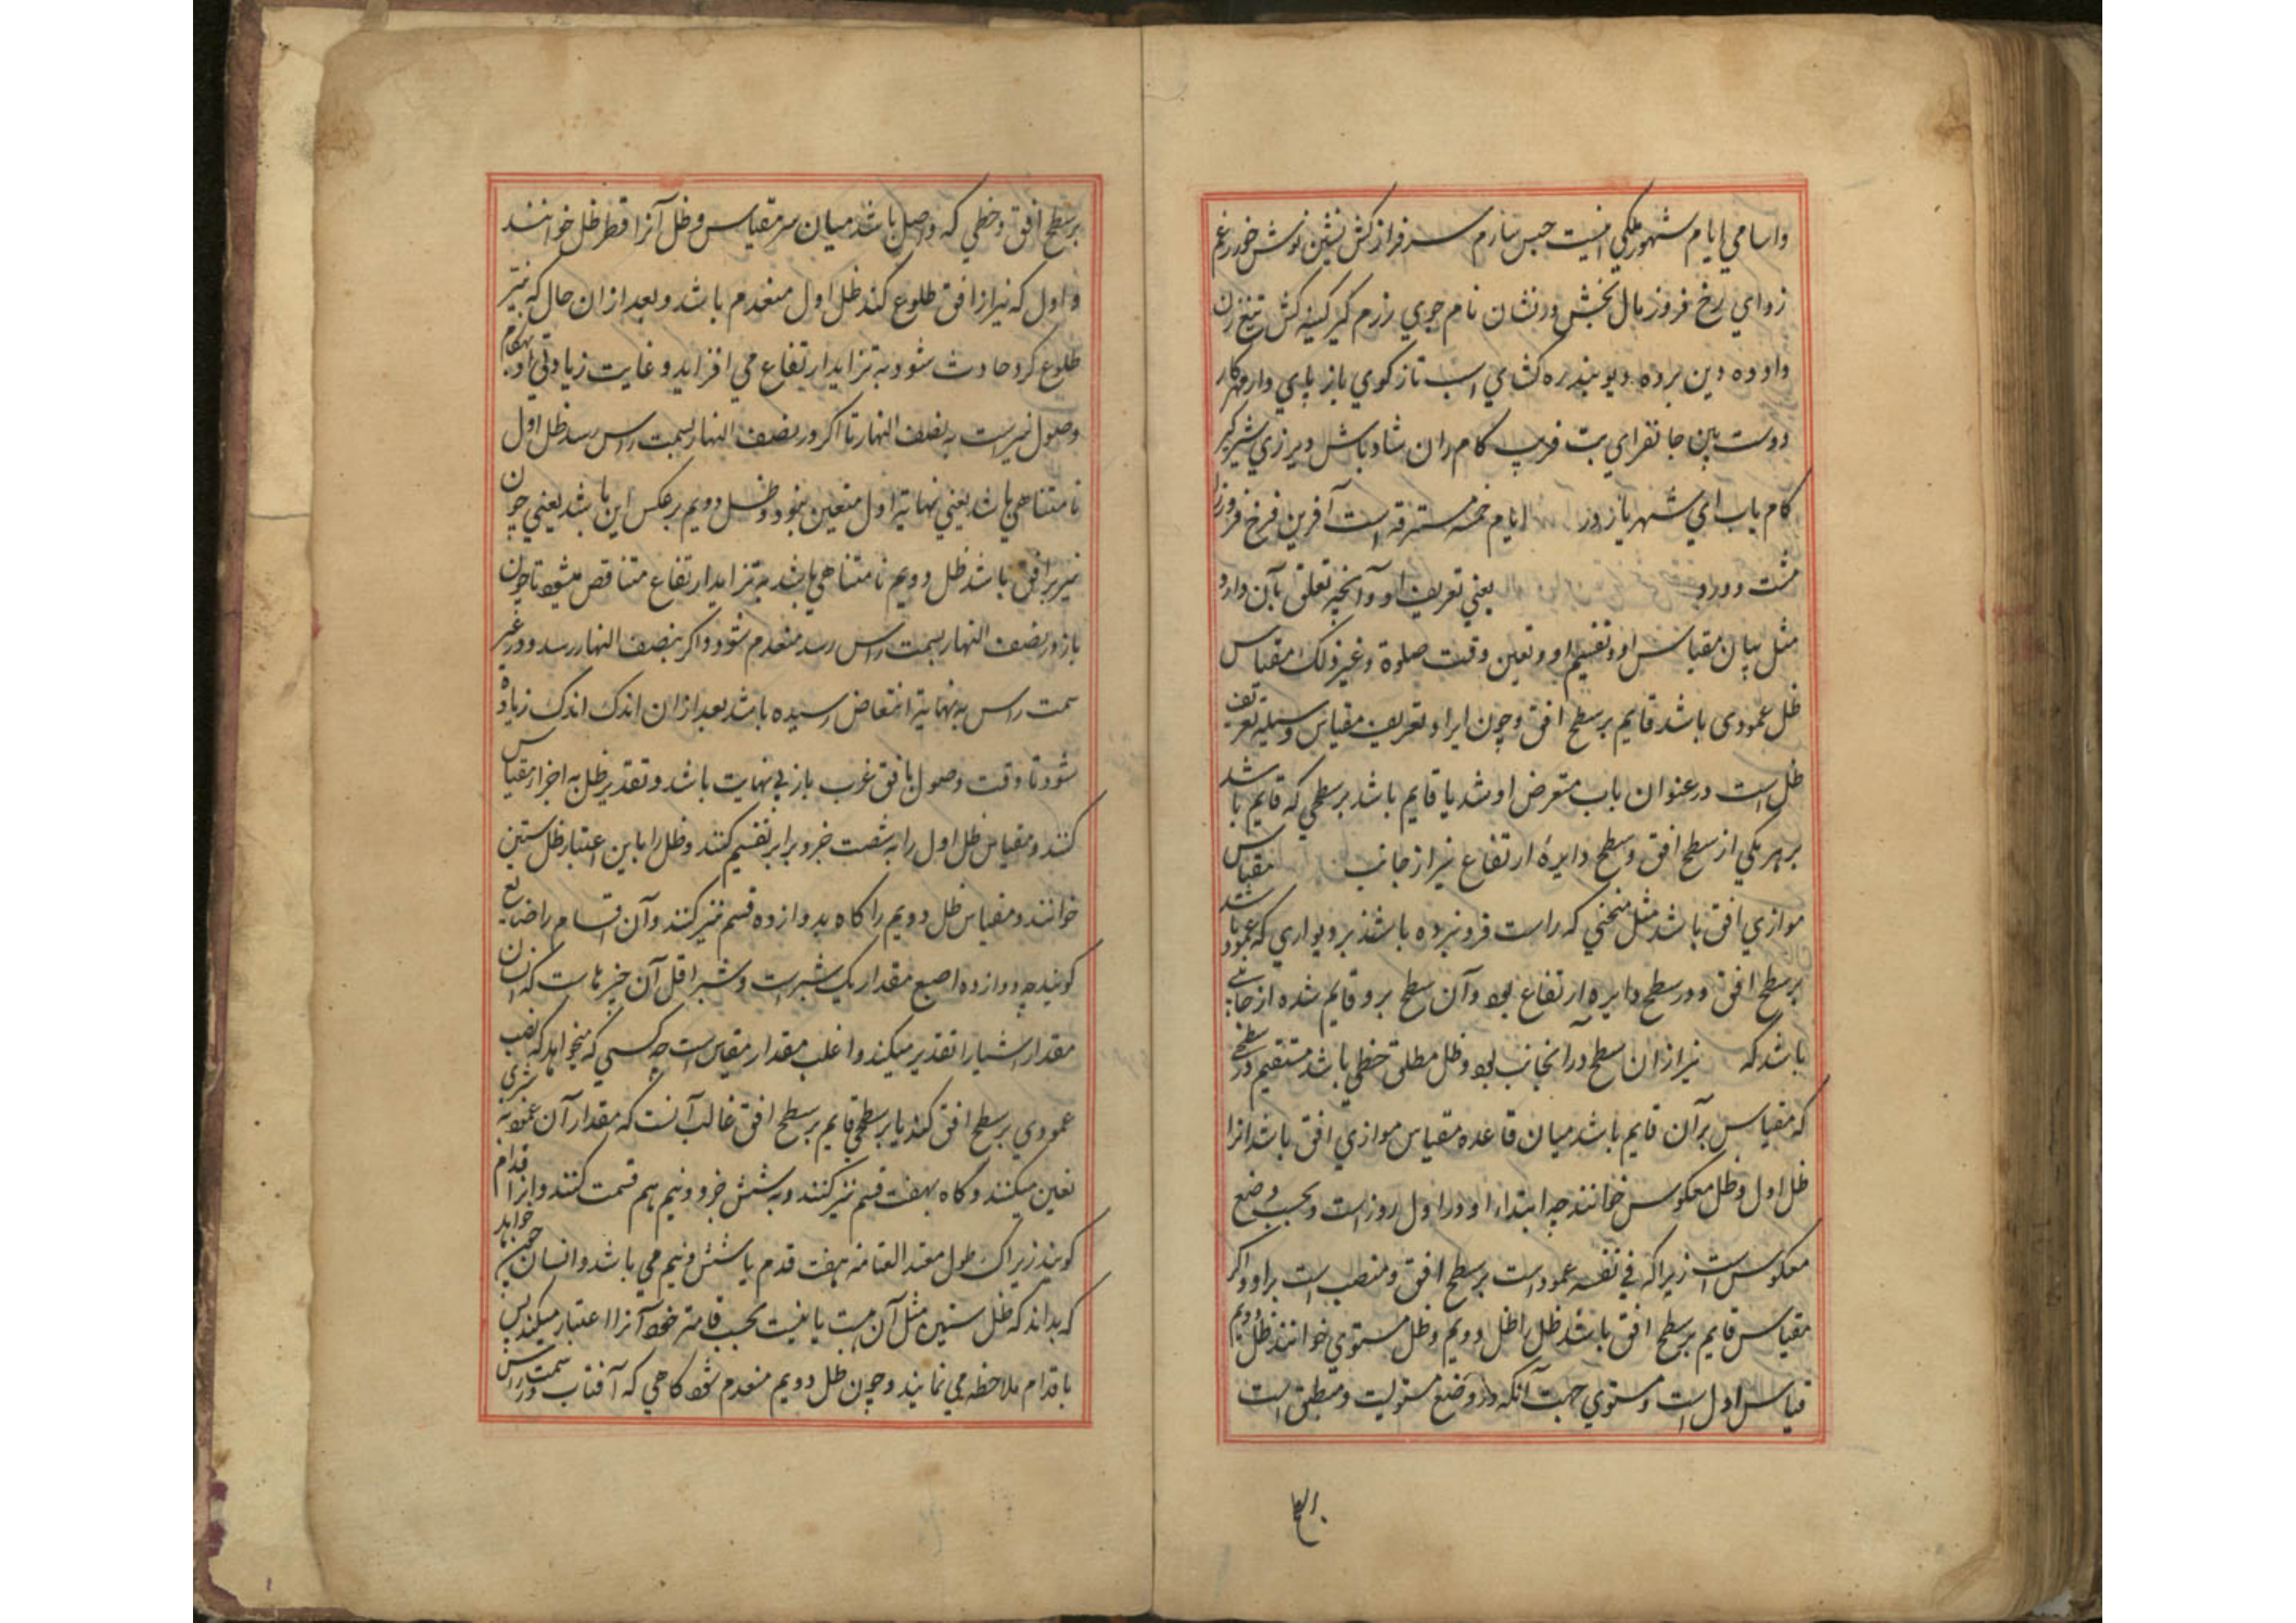 واسامي ايام مشهور ملكي اينست سرفراز كش نشين نوش خور
رخ فروز مال بخش نام جوي رزم كير كينه كش تيغ زن
داوده دين ديو بند ره كشاي اسب تاز كوي باز پاي دار مهر كار
دوست بين جانفزاي بت فريب كام ران شاد باش دير زي شير كير
كام ياب ايام خمسه مسترقه است آفرين فرخ فيروز
يعني تعريف او و آنچه تعلق بآن دارد
مثل بيان مقياس او و تقسيم او و تعين وقت صلوة وغير ذلك مقياس
ظل عمودى باشد قايم بر سطح افق و چون ايراد تعريف مقياس وسيله تعريف
ظل است در عنوان باب متعرض او شد يا قايم باشد بر سطحي كه قايم باشد
بر هر يكي از سطح افق و سطح دايرهٔ ارتفاع نير از جانب مقياس
موازي افق باشد مثل ميخي كه راست فرو برده باشند بر ديواري كه عمود باشد
بر سطح افق و در سطح دايره ارتفاع بود و آن سطح برو قايم شده از جانبي
باشد كه نير از ان سطح در انجانب بود و ظل مطلق خطي باشد مستقيم در سطحي
كه مقياس بر آن قايم باشد ميان قاعده مقياس موازي افق باشد انرا
ظل اول و ظل معكوس خوانند چه ابتداء او در اول روز است و بحسب وضع
معكوس است زيرا كه في نفسه عمود است بر سطح افق و منصب است برا و و اكر
مقياس قايم بر سطح افق باشد ظل را ظل دويم و ظل مستوي خوانند ظل دويم
قياس اول است و مستوي جهت آنكه در وضع مستويست و منطبق است
بر سطح افق و خطي كه واصل باشد ميان سر مقياس و ظل آنرا قطر ظل خوانند
و اول كه نير از افق طلوع كند ظل اول منعدم باشد و بعد از ان حال كه نير
طلوع كرد حادث شود و به تزايد ارتفاع مي افزايد و غايت زيادتي او بهنكام
وصول نير است به نصف النهار تا اكر در نصف النهار بسمت راس رسد ظل اول
نا متناهي باشد يعني نهاية اول متعين نبود و ظل دويم بر عكس اين باشد يعني چون
نير بر افق باشد ظل دويم نا متناهي باشد به تزايد ارتفاع متناقص ميشود تا چون
باز در نصف النهار بسمت راس رسد منعدم شود و اكر بنصف النهار رسد و در غير
سمت راس به نهاية انتقاص رسيده باشد بعد از ان اندك اندك زياده
شود تا وقت وصول بافق غرب باز بي نهايت باشد و تقدير ظل به اجزاء مقياس
كنند و مقياس ظل اول را به شصت جزو برابر تقسيم كنند و ظل را باين اعتبار ظل ستين
خوانند و مقياس ظل دويم را كاه بدوازده قسم نيز كنند و آن اقسام را اصابع
كويند چه دوازده اصبع مقدار يك شبر است و شبر اقل آن چيزهاست كه انسان
مقدار اشيا را تقدير ميكند و اغلب مقدار مقياس است چه كسي كه ميخواهد كه نصب
عمودي بر سطح افق كند يا بر سطحي قايم بر سطح افق غالب آنست كه مقدار آن عمود به شبرى
تعين ميكند و كاه بهفت قسم نيز كنند و به شش جزو و نيم هم قسمت كنند و انرا اقدام
كويند زيراك طول معتدل القامه هفت قدم يا شش و نيم مي باشد و انسان چون خواهد
كه بداند كه ظل ستين مثل آن هست يا نيست بحسب قامت خود آنرا اعتبار ميكند پس
باقدام ملاحظه مي نمايند و چون ظل دويم منعدم شود كاهي كه آفتاب در سمت راس